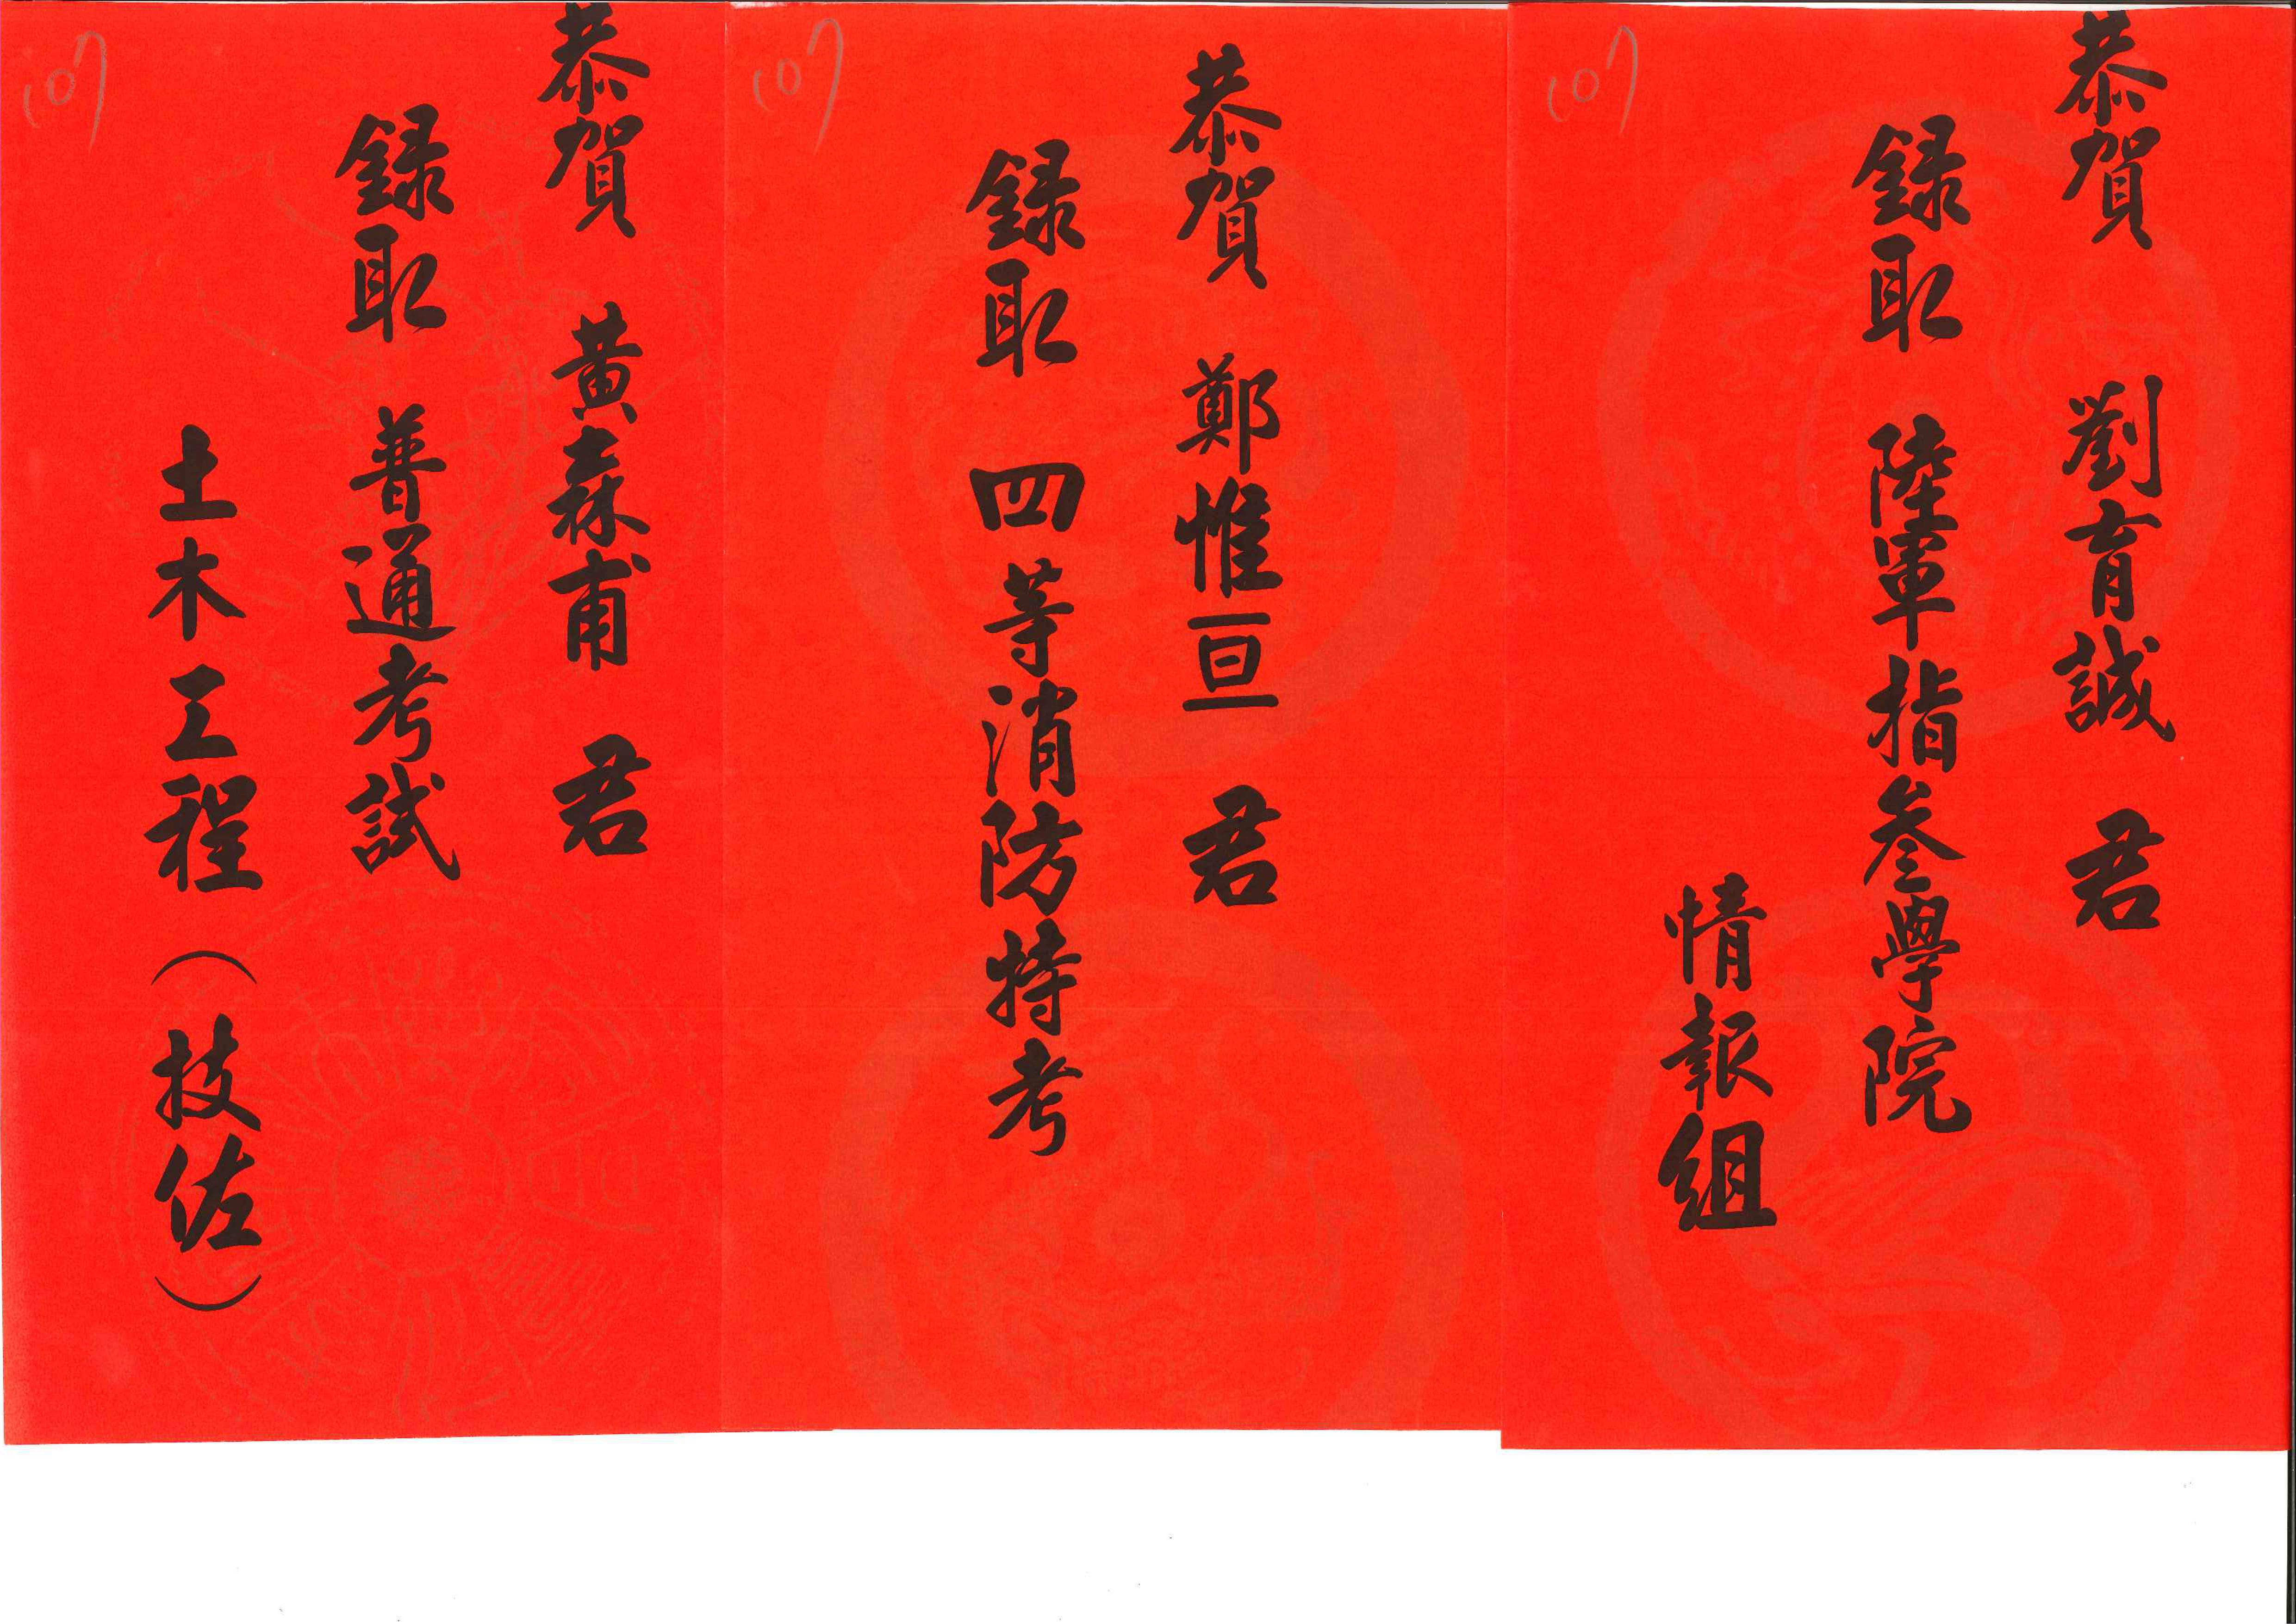 恭賀 劉育誠 君
錄取 陸軍指參學院
情報組
107
恭賀 鄭惟亘 君
錄取 四等消防特考
107
恭賀 黃森甫 君
錄取 普通考試
土木工程(技佐)
107